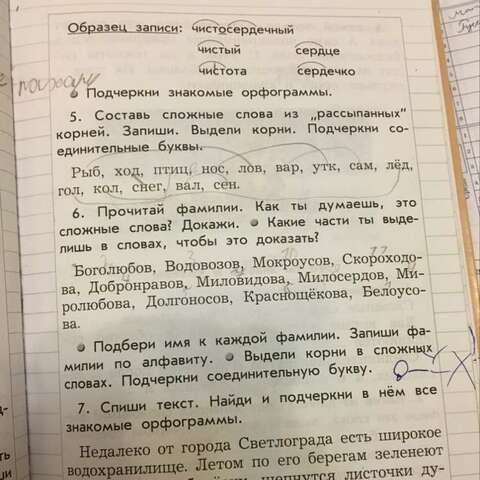 Образец записи: чистосердечный
чистый сердце
чистота сердечко
Подчеркни знакомые орфограммы.
5. Составь сложные слова из „рассыпанных"
корней. Запиши. Выдели корни. Подчеркни со-
единительные буквы.
Рыб, ход, птиц, нос, лов, вар, утк, сам, лёд,
гол, кол, снег, вал, сен.
6. Прочитай фамилии. Как ты думаешь, это
сложные слова? Докажи. ● Какие части ты выде-
лишь в словах, чтобы это доказать?
Боголюбов, Водовозов, Мокроусов, Скороходо-
ва, Добронравов, Миловидова, Милосердов, Ми-
ролюбова, Долгоносов, Краснощёкова, Белоусо-
ва.
● Подбери имя к каждой фамилии. Запиши фа-
милии по алфавиту. ● Выдели корни в сложных
словах. Подчеркни соединительную букву.
7. Спиши текст. Найди и подчеркни в нём все
знакомые орфограммы.
Недалеко от города Светлограда есть широкое
водохранилище. Летом по его берегам зеленеют
шепчутся листочки ду-